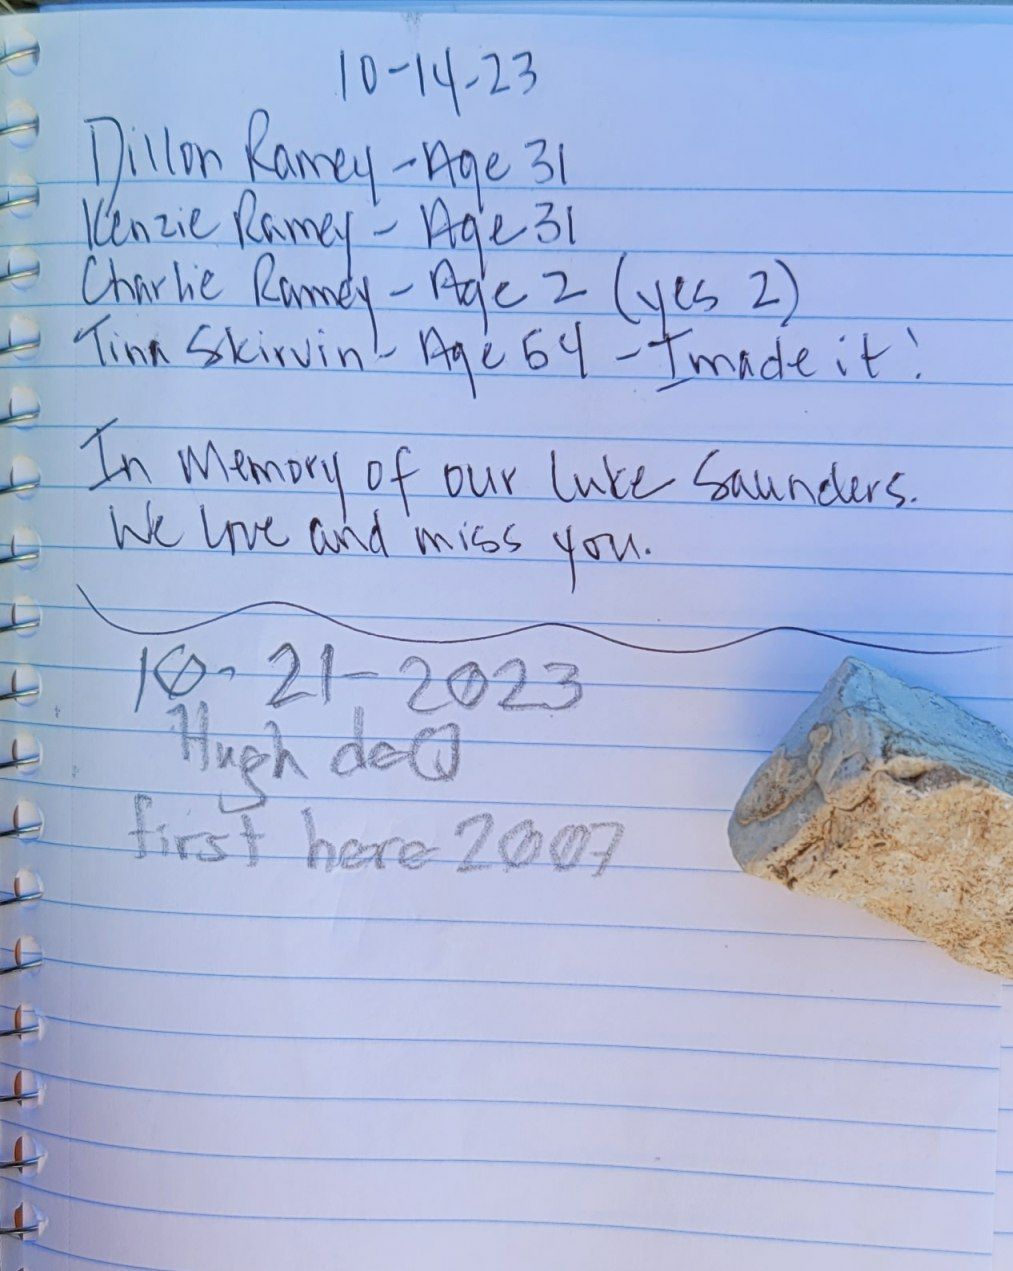 10-14-23
Dillon Ramey - Age 31
Kenzie Ramey - Age 31
Charlie Ramey - Age 2 (yes 2)
Tina Skirvin - Age 64 - I made it!
In Memory of our Luke Saunders.
We love and miss you.
10-21-2023
Hugh deQ
first here 2007